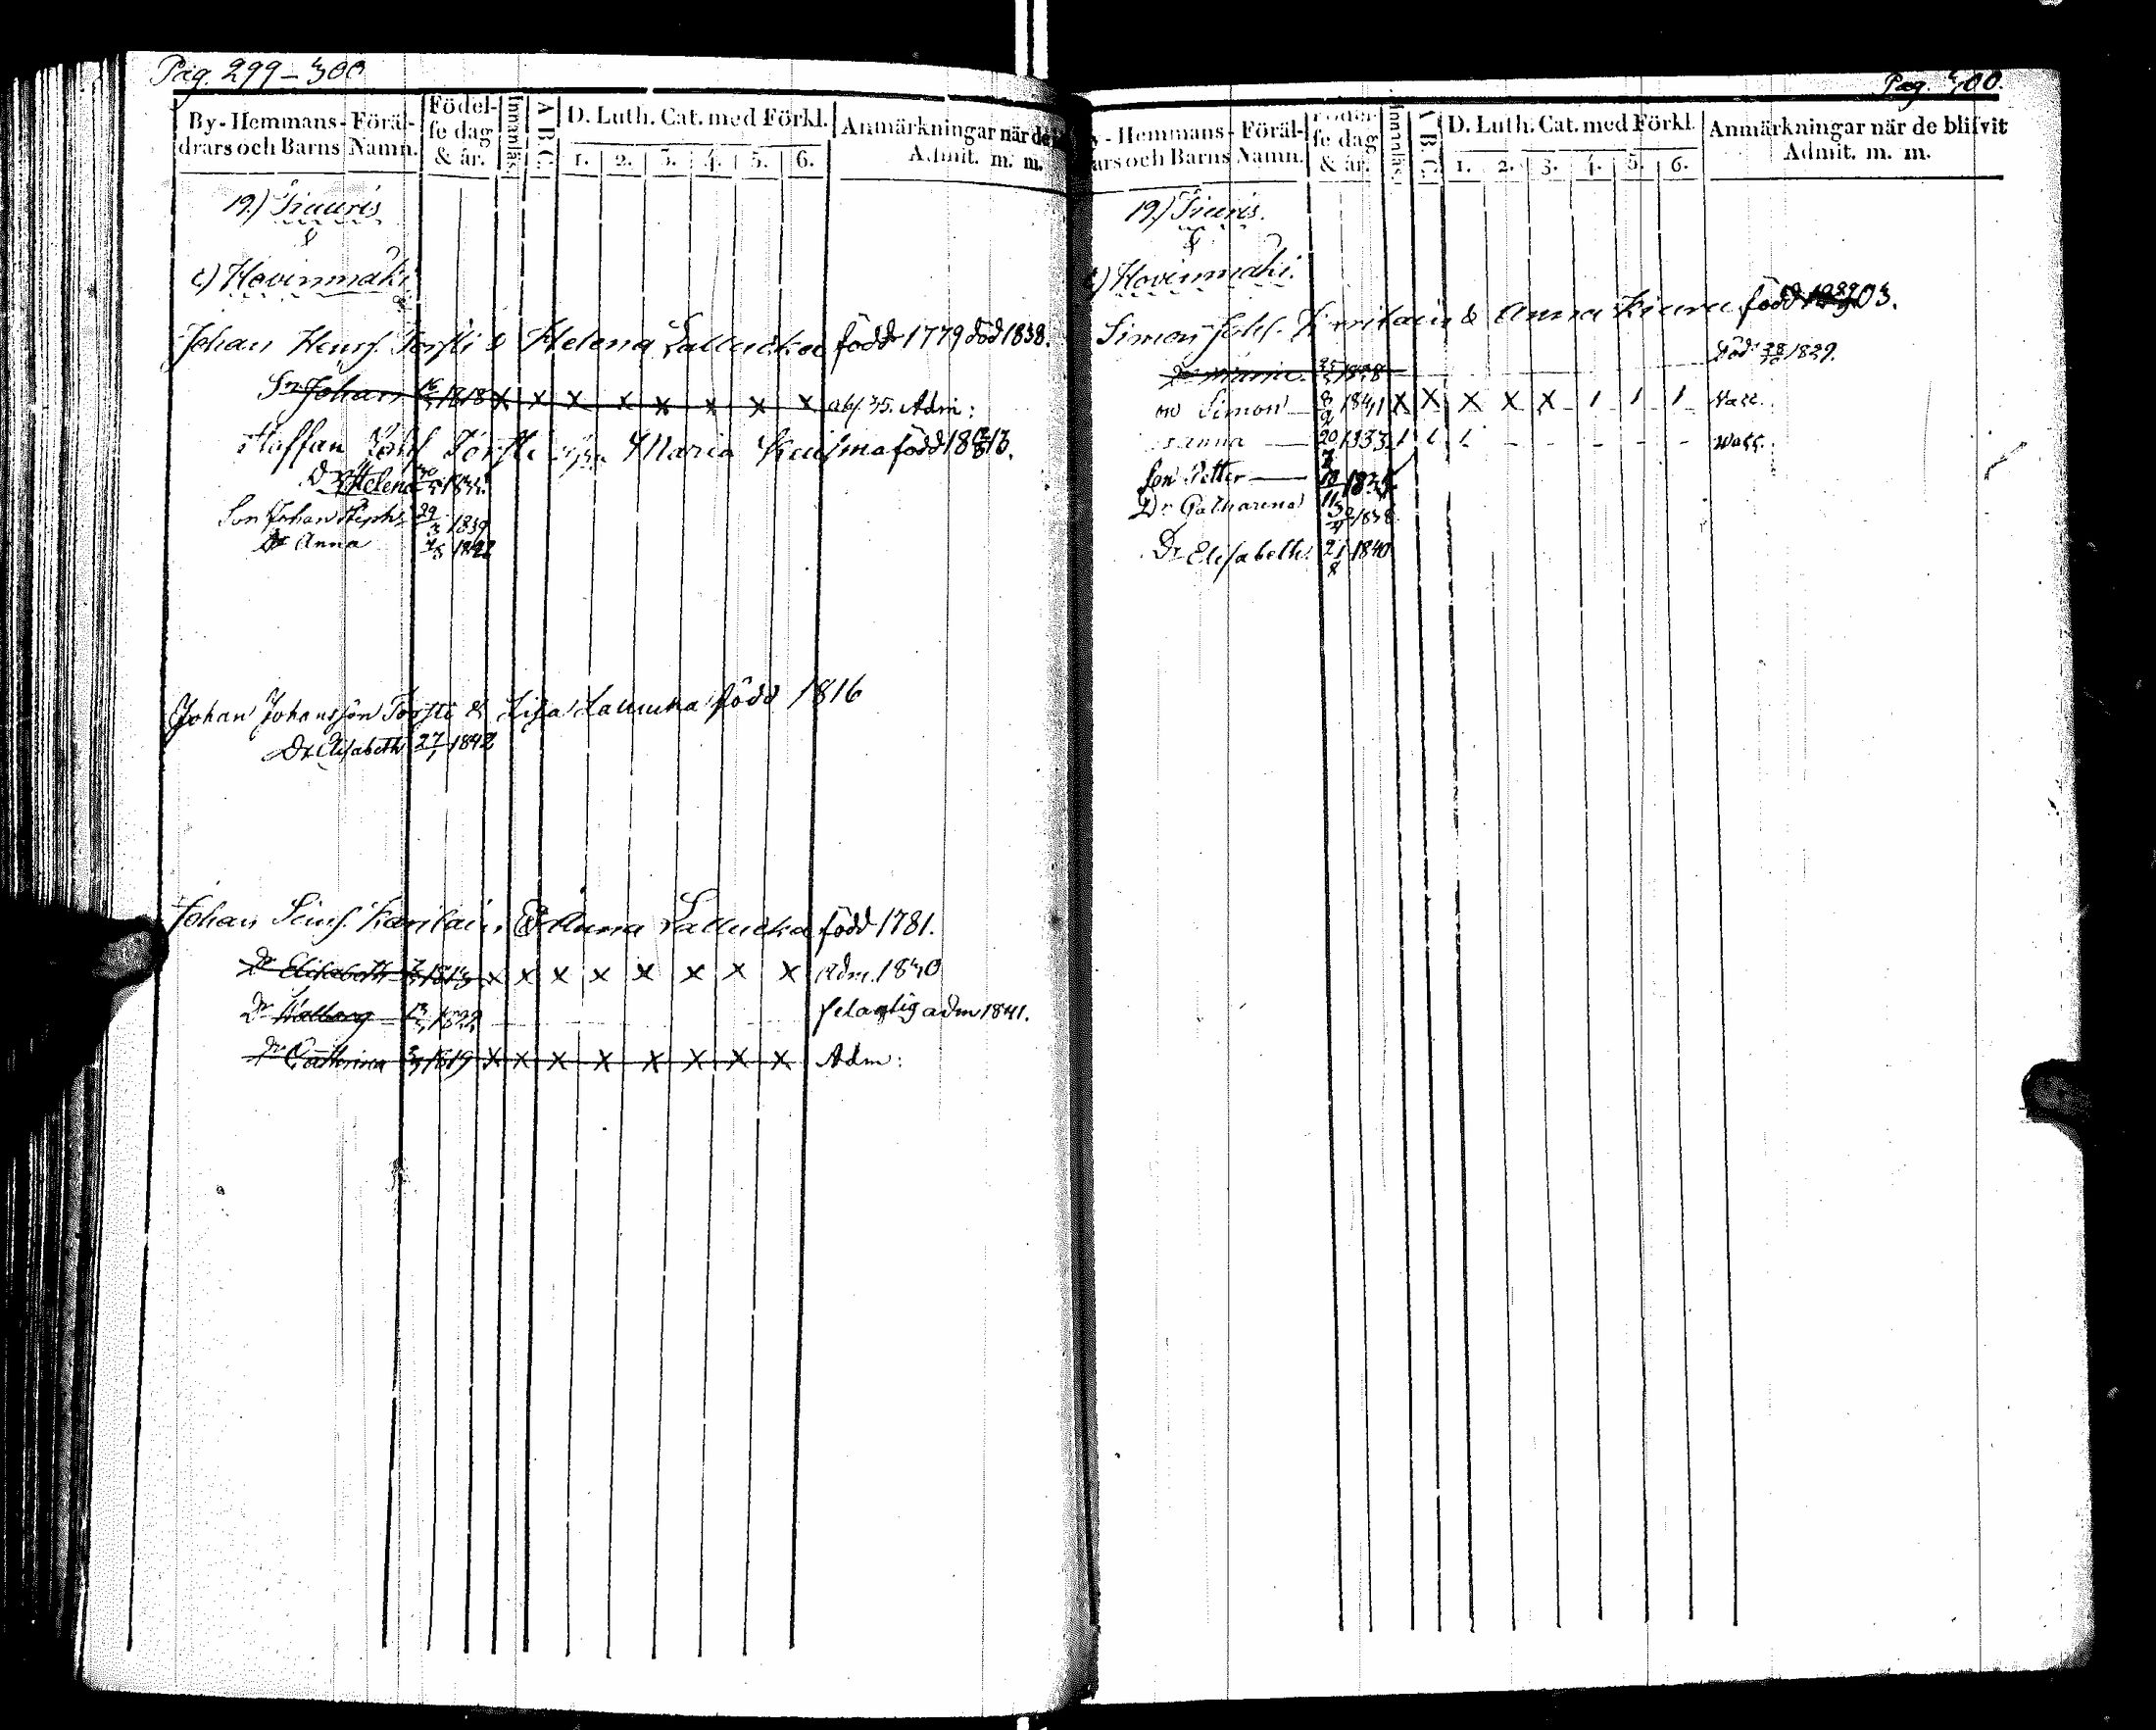 Pag. 299–300
By-Hemmans-Föräl-
drars och Barns Namn.
Födel-
se dag
& år.
Innanläs.
A B C.
D. Luth. Cat. med Förkl.
1. 2. 3. 4. 5. 6.
Anmärkningar när de
Admit. m. m.
19.) Kiuuris
c) Hovinmäki
Johan Henrs. Torsti & Helena Lallucka född 1779 död 1838.
Sn Johan 1818 x x x x x x x x abs. 35. Adm:
Staffan Joh Torsti Maria född 1813.
Dr Helena
Son Johan Steph. 29/3 1839
Dr Anna 1842
Johan Johansson Torsti & Lisa Laucka född 1816
Dr Elisabeth 27/1 1842
Johan Sims. Karilain & Anna Lallucka född 1781.
Dr Elisabeth 1813 x x x x x x x x Adm. 1830
Dr Walborg felagtig adm 1841.
Dr Catharina 1819 x x x x x x x x Adm:
Pag. 300.
y-Hemmans-Föräl-
ars och Barns Namn.
Födel-
se dag
& år.
Innanläs.
A B C.
D. Luth. Cat. med Förkl.
1. 2. 3. 4. 5. 6.
Anmärkningar när de blifvit
Admit. m. m.
19.) Kiuris.
c) Hovinmäki.
Simon Joh. & Anna Kiuru född 1803.
Dr Maria. 25/3 1828 Död 28/10 1829.
on Simon 8/9 1841 x x x x x 1 1 1 Vacc.
anna 20 1833 1 1 1 - - - - - Vacc.
Son Petter 18/11
Dr Catharina 1838
Dr Elisabeth. 21/8 1840